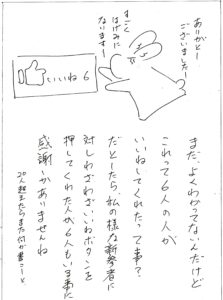 ありがとー
ございましたー
すごく
はげみに
なります!
いいね 6
まだ、よくわかってないんだけど
これって6人の人が
いいねしてくれたって事?
だとしたら、私の様な新参者に
対しわざわざいいねボタンを
押してくれた人が6人もいる事に
感謝しかありませんね
20人超えたらまた何か書こーと